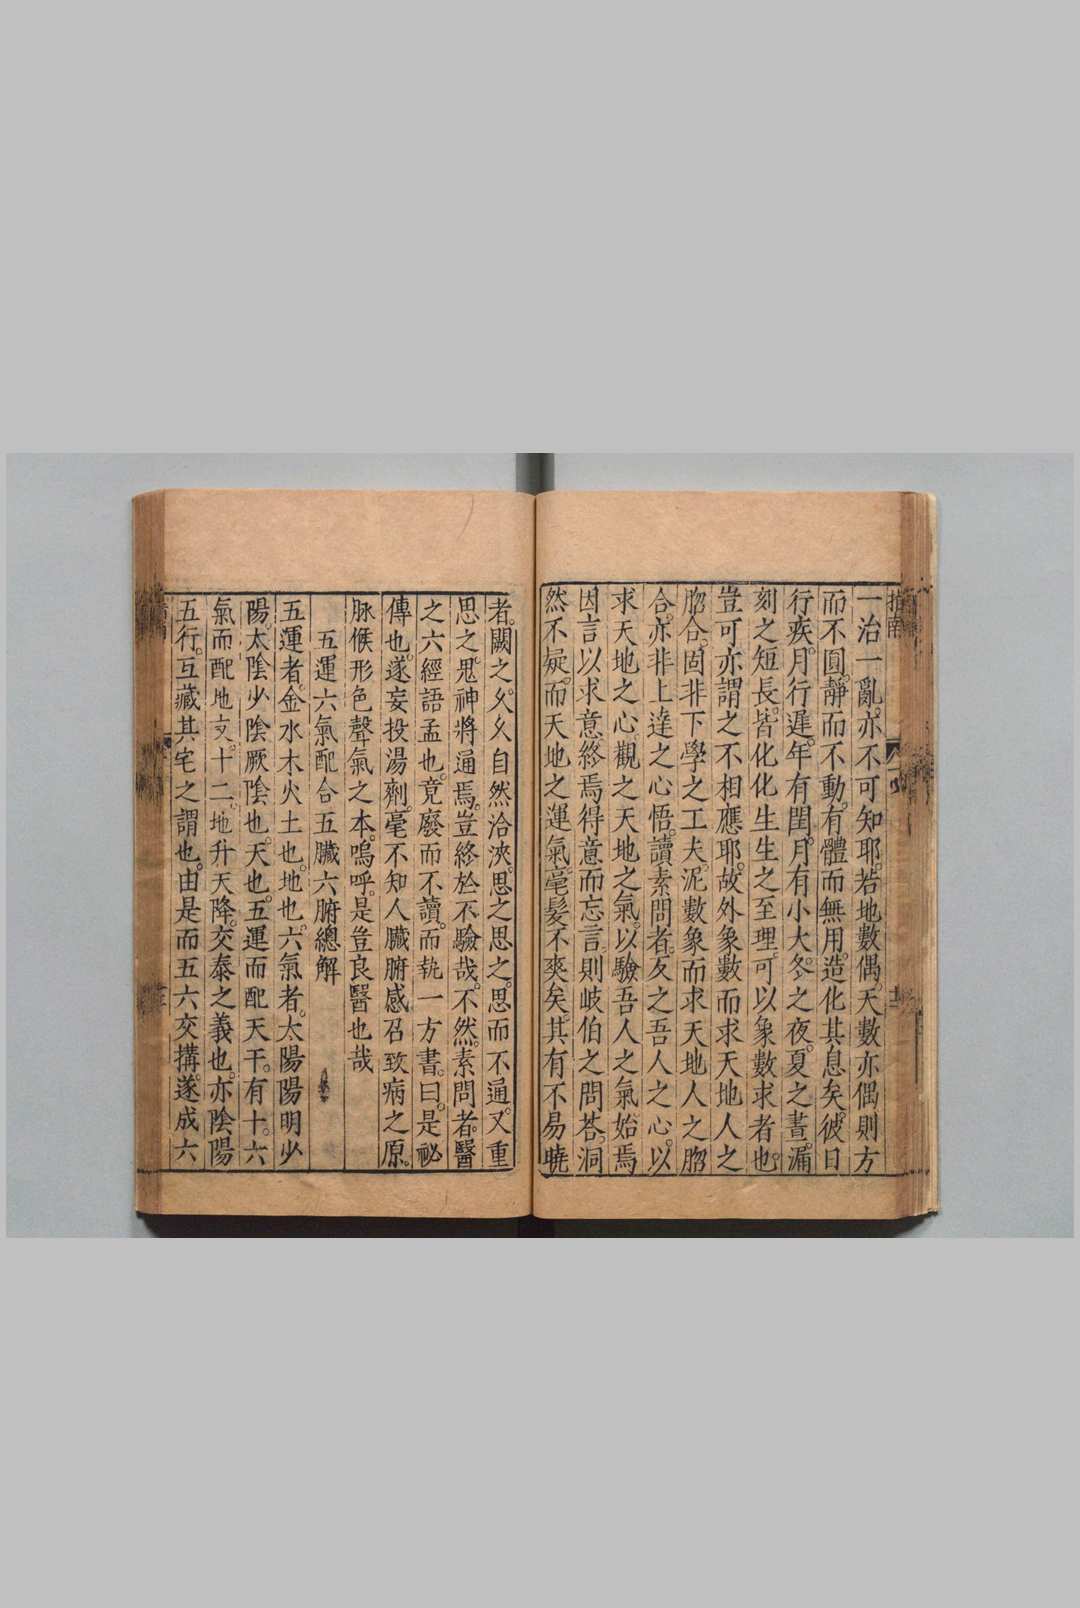 一治一亂。亦不可知耶。若地數偶。天數亦偶。則方
而不圓。靜而不動。有體而無用。造化其息矣。彼日
行疾。月行遲。年有閏。月有小大。冬之夜。夏之晝。漏
刻之短長。皆化化生生之至理。可以象數求者也。
豈可亦謂之不相應耶。故外象數而求天地人之
脗合。固非下學之工夫。泥數象而求天地人之脗
合。亦非上達之心悟。讀素問者。反之吾人之心。以
求天地之心。觀之天地之氣。以驗吾人之氣。始焉
因言以求意。終焉得意而忘言。則岐伯之問荅。洞
然不疑。而天地之運氣。毫髮不爽矣。其有不易曉
者。闕之。久久自然洽浹。思之思之。思而不通。又重
思之。鬼神將通焉。豈終於不驗哉。不然。素問者。醫
之六經語孟也。竟廢而不讀。而執一方書。曰。是祕
傳也。遂妄投湯劑。毫不知人臟腑感召致病之原。
脉候形色聲氣之本。嗚呼。是豈良醫也哉
五運六氣配合五臟六腑總解
五運者。金水木火土也。地也。六氣者。太陽陽明少
陽太陰少陰厥陰也。天也。五運而配天干。有十。六
氣而配地支。十二。地升天降。交泰之義也。亦陰陽
五行。互藏其宅之謂也。由是而五六交搆。遂成六
指南